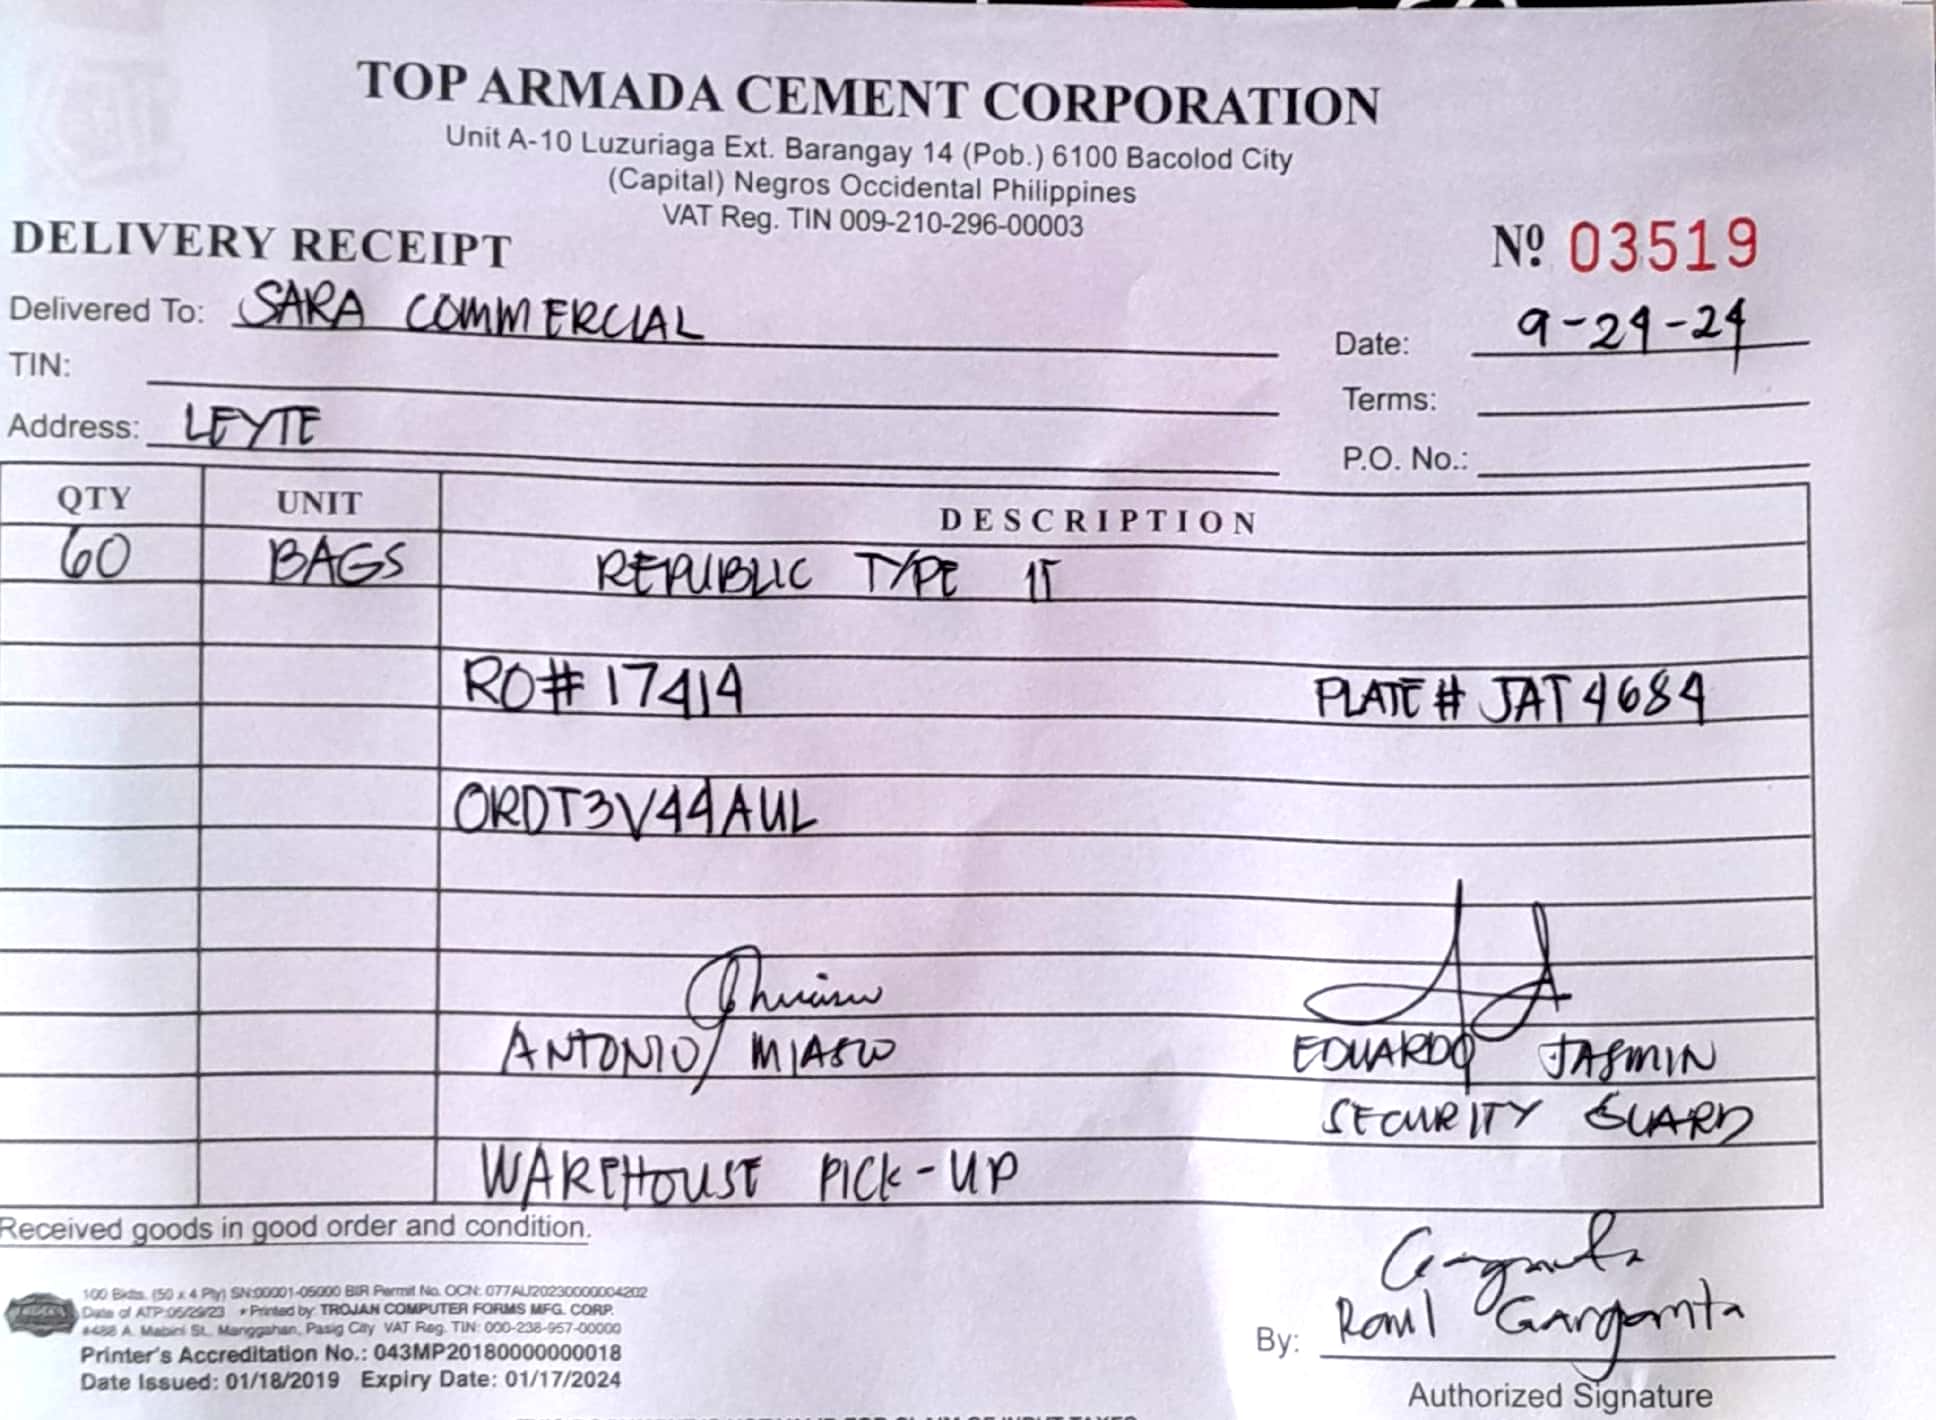 TOP ARMADA CEMENT CORPORATION
Unit A-10 Luzuriaga Ext. Barangay 14 (Pob.) 6100 Bacolod City
(Capital) Negros Occidental Philippines
VAT Reg. TIN 009-210-296-00003
DELIVERY RECEIPT
Nº 03519
Delivered To: SARA COMMERCIAL
Date: 9-24-24
TIN:
Terms:
Address: LEYTE
P.O. No.:
QTY UNIT DESCRIPTION
60 BAGS REPUBLIC TYPE 1T
RO# 17414 PLATE # JAT 4684
ORDT3V44AUL
ANTONIO MIASCO EDUARDO JASMIN
SECURITY GUARD
WAREHOUSE PICK-UP
Received goods in good order and condition.
100 Bklts. (50 x 4 Ply) SN:00001-05000 BIR Permit No. OCN: 077AU20230000004202
Date of ATP:05/29/23 • Printed by: TROJAN COMPUTER FORMS MFG. CORP.
#488 A. Mabini St., Manggahan, Pasig City VAT Reg. TIN: 000-238-957-00000
Printer's Accreditation No.: 043MP20180000000018
Date Issued: 01/18/2019 Expiry Date: 01/17/2024
By: Raul Garganta
Authorized Signature